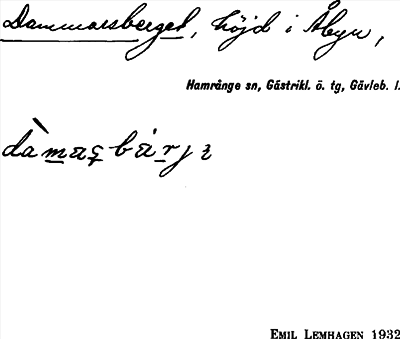 Dammarsberget, höjd i Åbyn,
Hamrånge sn, Gästrikl. ö. tg, Gävleb. l.
EMIL LEMHAGEN 1932